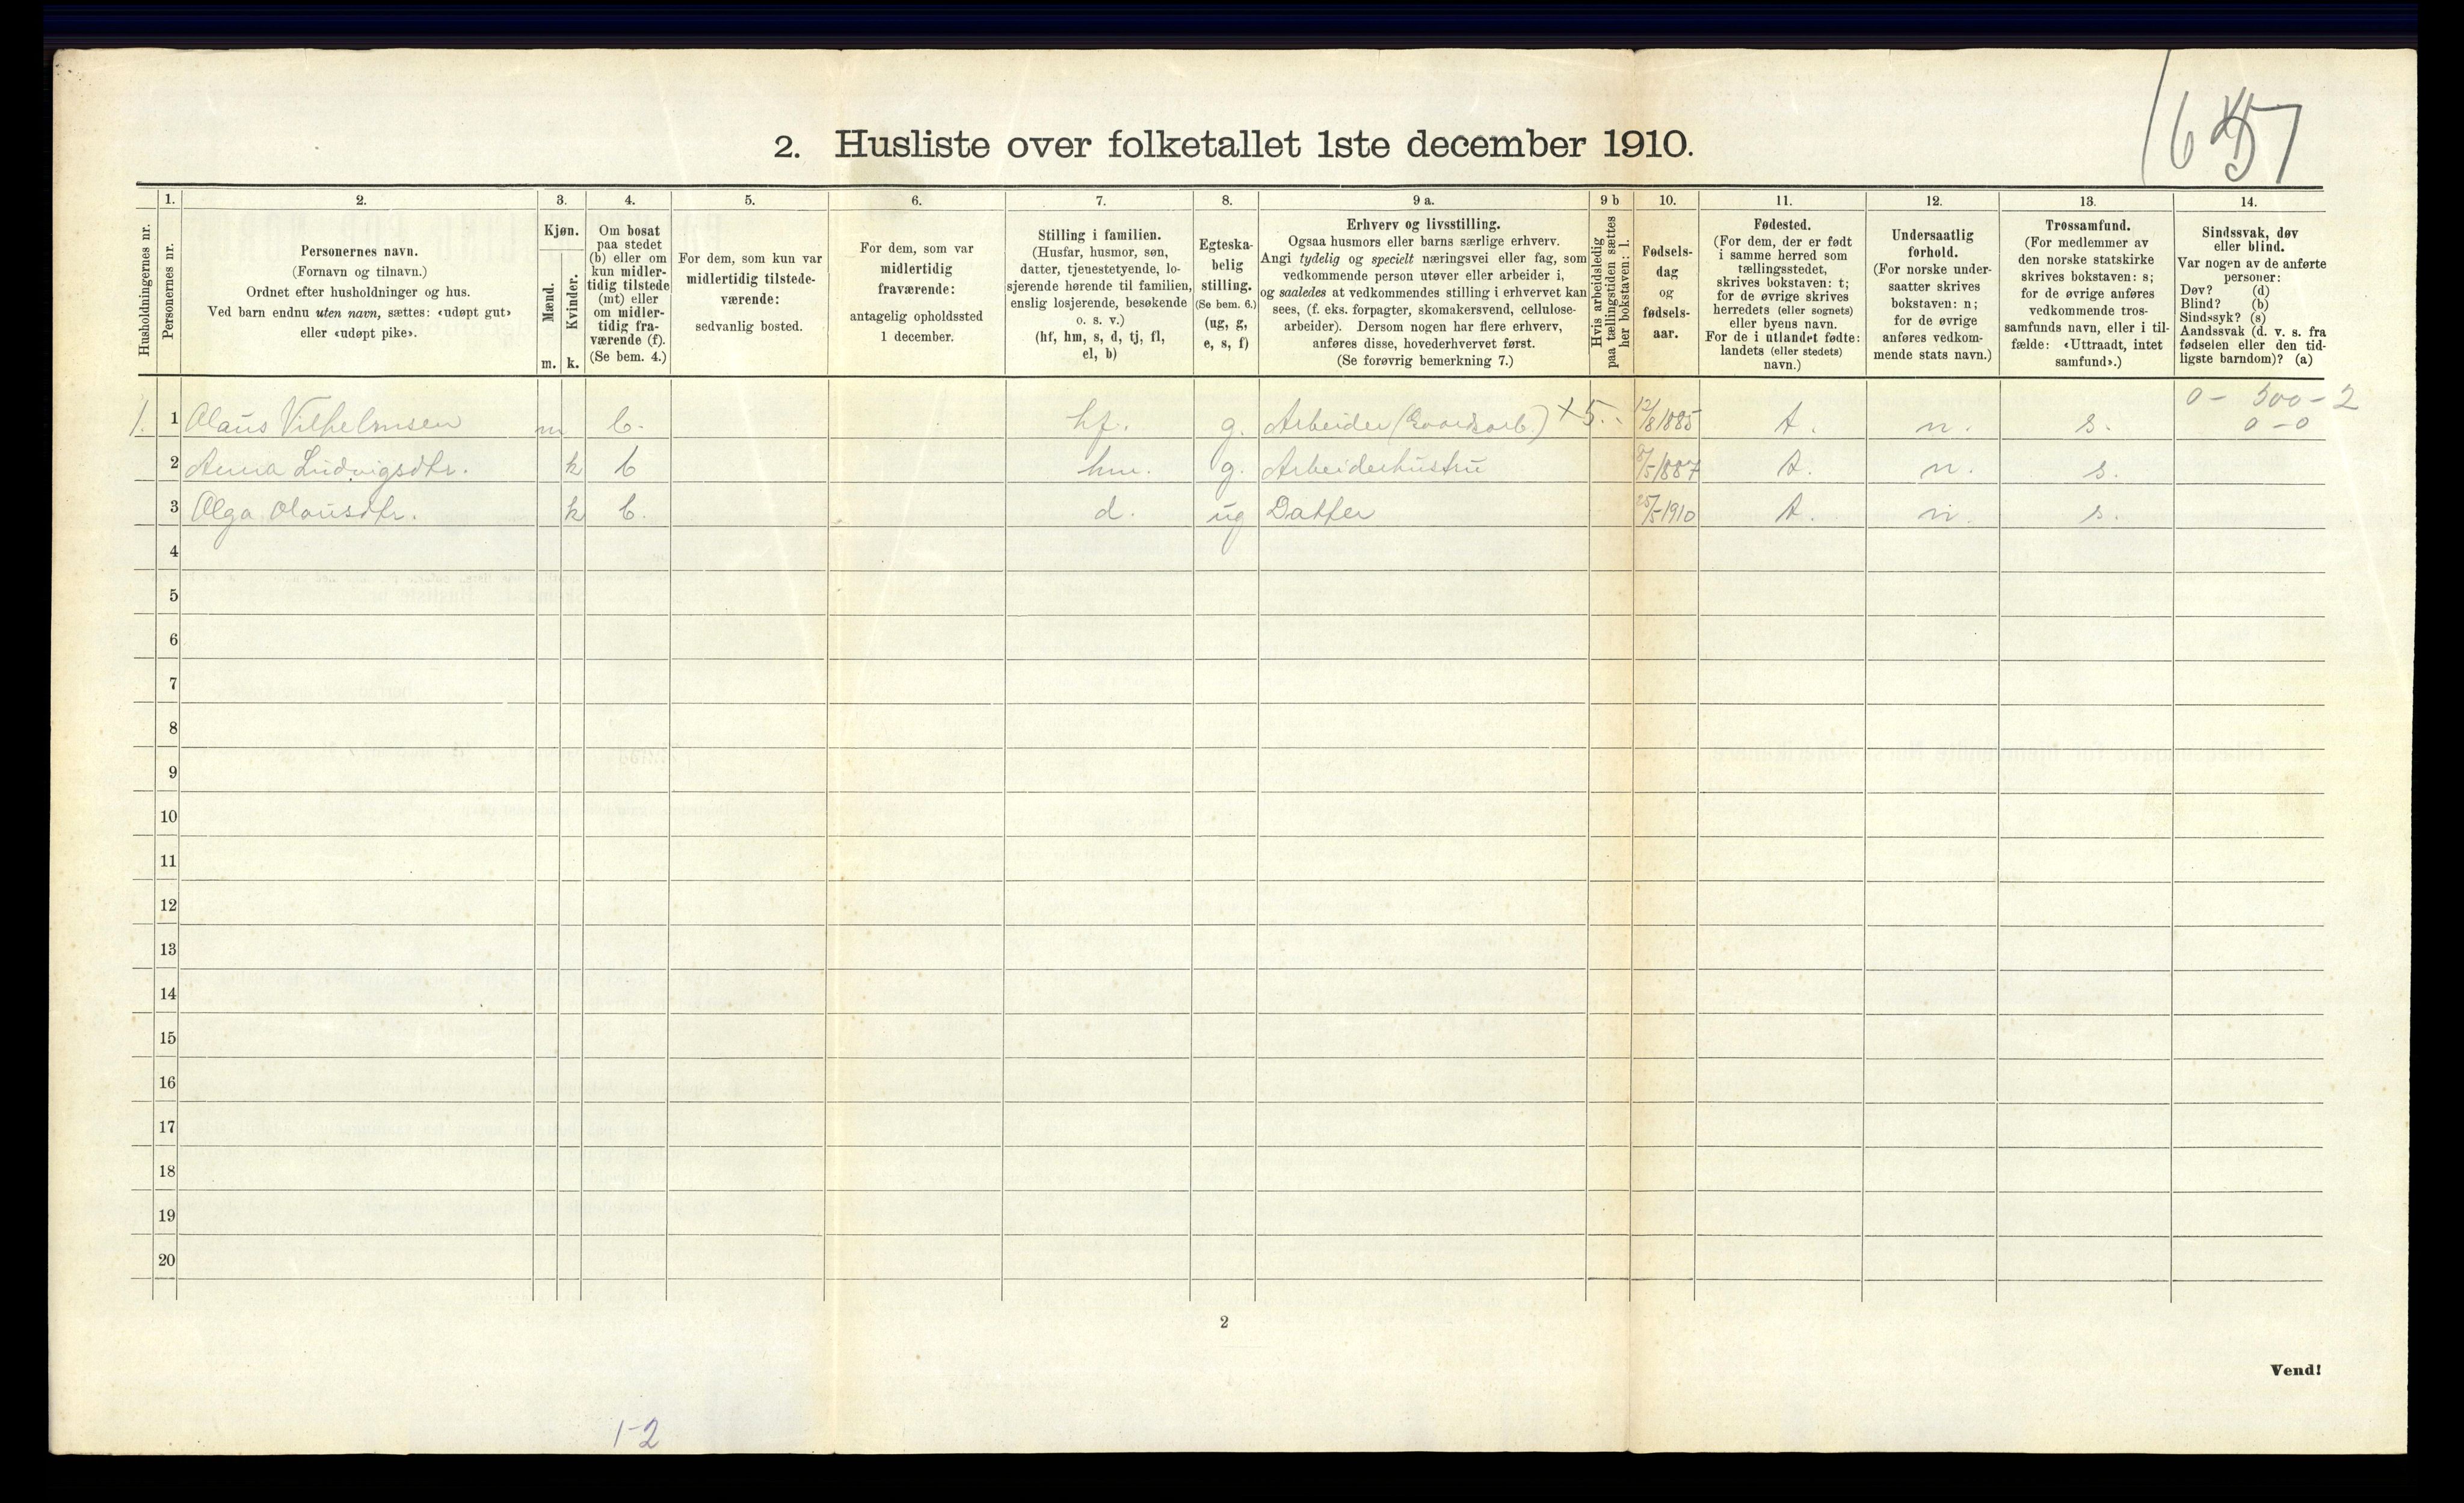 657
2. Husliste over folketallet 1ste december 1910.
Husholdningernes nr.
1.
Personernes nr.
2.
Personernes navn.
(Fornavn og tilnavn.)
Ordnet efter husholdninger og hus.
Ved barn endnu uten navn, sættes: «udøpt gut»
eller «udøpt pike».
3.
Kjøn.
Mænd.
Kvinder.
m. k.
4.
Om bosat
paa stedet
(b) eller om
kun midler-
tidig tilstede
(mt) eller
om midler-
tidig fra-
værende (f).
(Se bem. 4.)
5.
For dem, som kun var
midlertidig tilstede-
værende:
sedvanlig bosted.
6.
For dem, som var
midlertidig
fraværende:
antagelig opholdssted
1 december.
7.
Stilling i familien.
(Husfar, husmor, søn,
datter, tjenestetyende, lo-
sjerende hørende til familien,
enslig losjerende, besøkende
o. s. v.)
(hf, hm, s, d, tj, fl,
el, b)
8.
Egteska-
belig
stilling.
(Se bem. 6.)
(ug, g,
e, s, f)
9 a.
Erhverv og livsstilling.
Ogsaa husmors eller barns særlige erhverv.
Angi tydelig og specielt næringsvei eller fag, som
vedkommende person utøver eller arbeider i,
og saaledes at vedkommendes stilling i erhvervet kan
sees, (f. eks. forpagter, skomakersvend, cellulose-
arbeider). Dersom nogen har flere erhverv,
anføres disse, hovederhvervet først.
(Se forøvrig bemerkning 7.)
9 b
Hvis arbeidsledig
paa tællingstiden sættes
her bokstaven: l.
10.
Fødsels-
dag
og
fødsels-
aar.
11.
Fødested.
(For dem, der er født
i samme herred som
tællingsstedet,
skrives bokstaven: t;
for de øvrige skrives
herredets (eller sognets)
eller byens navn.
For de i utlandet fødte:
landets (eller stedets)
navn.)
12.
Undersaatlig
forhold.
(For norske under-
saatter skrives
bokstaven: n;
for de øvrige
anføres vedkom-
mende stats navn.)
13.
Trossamfund.
(For medlemmer av
den norske statskirke
skrives bokstaven: s;
for de øvrige anføres
vedkommende tros-
samfunds navn, eller i til-
fælde: «Uttraadt, intet
samfund».)
14.
Sindssvak, døv
eller blind.
Var nogen av de anførte
personer:
Døv? (d)
Blind? (b)
Sindssyk? (s)
Aandssvak (d. v. s. fra
fødselen eller den tid-
ligste barndom)? (a)
0 - 500 - 2
1. 1 Olaus Vilhelmsen m b. hf. g. Arbeider (Gaardsarb.) + 5. 12/8 1885 t. n. s. 0 - 0
2 Anna Ludvigsdtr. k b hm. g. Arbeiderhustru 8/5 1887 t. n. s.
3 Olga Olausdtr. k b. d. ug Datter 25/5-1910 t. n. s.
4
5
6
7
8
9
10
11
12
13
14
15
16
17
18
19
20
2
Vend!
1-2